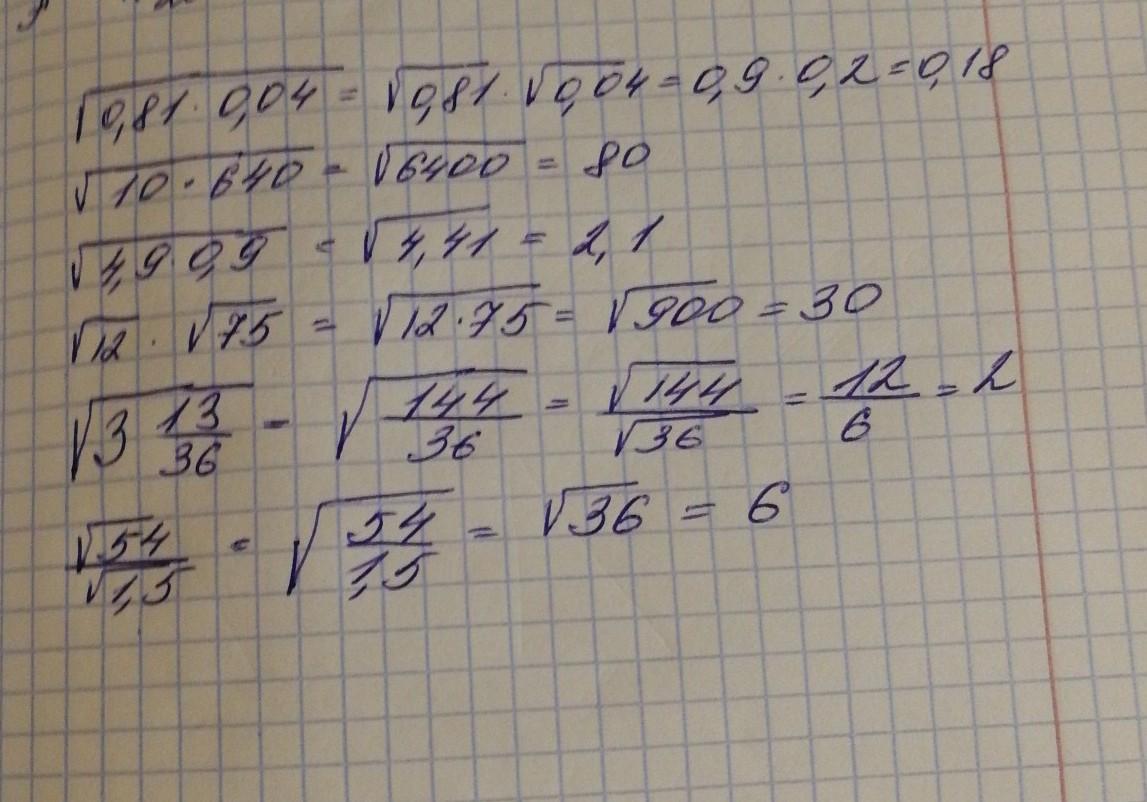 √0,81 · 0,04 = √0,81 · √0,04 = 0,9 · 0,2 = 0,18
√10 · 640 = √6400 = 80
√4,9 0,9 = √4,41 = 2,1
√12 · √75 = √12 · 75 = √900 = 30
√3 13/36 = √144/36 = √144/√36 = 12/6 = 2
√54/√1,5 = √54/1,5 = √36 = 6